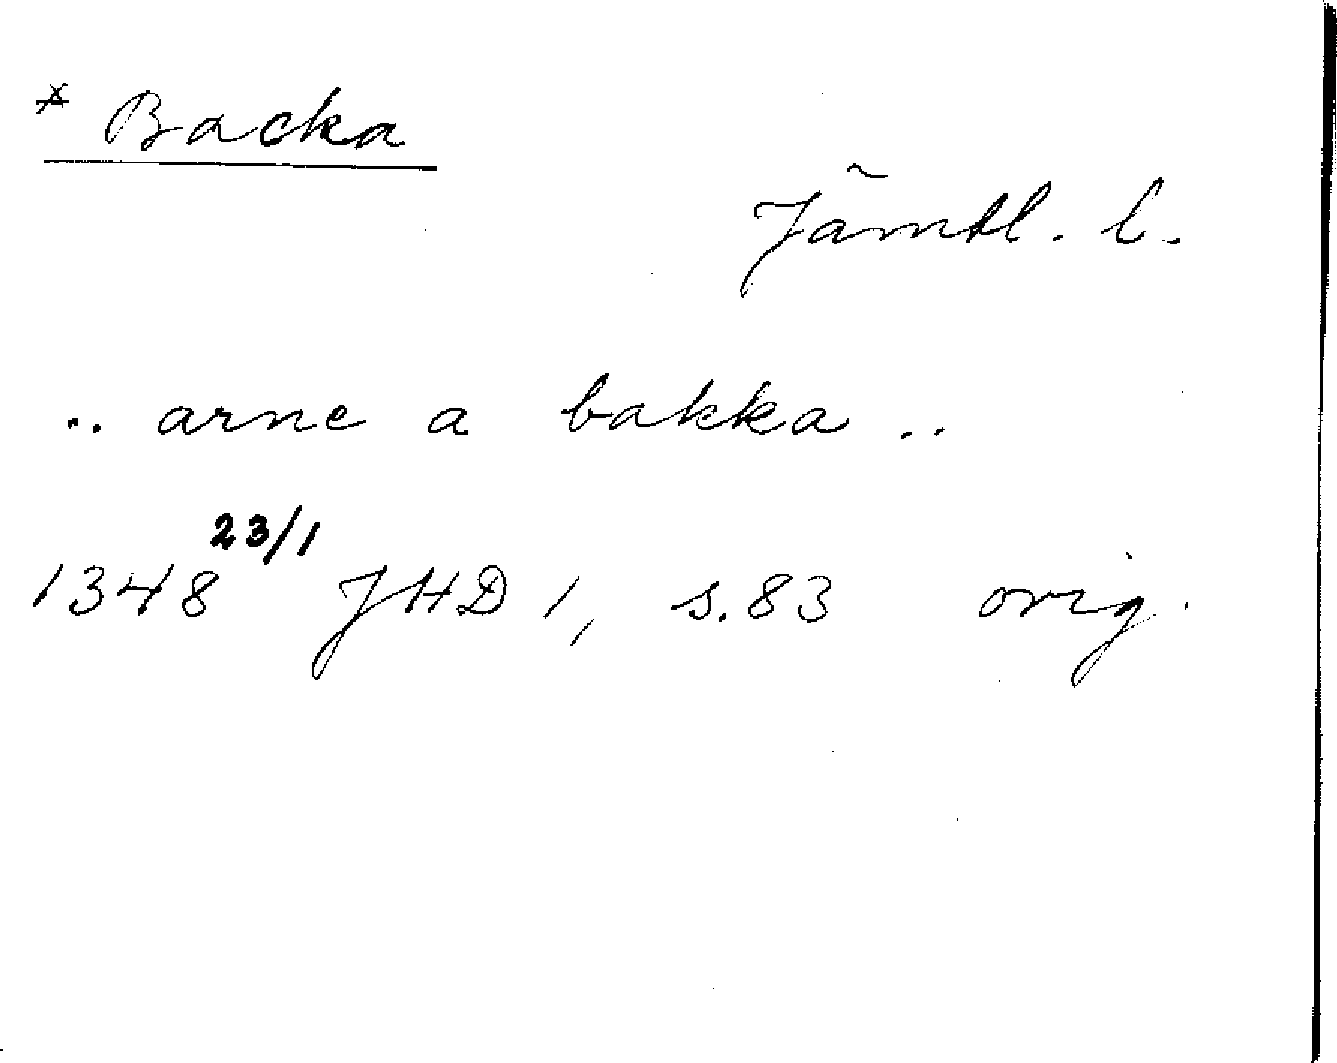 * Backa
Jämtl. l.
.. arne a bakka ..
1348 23/1 JHD 1, s. 83 orig.